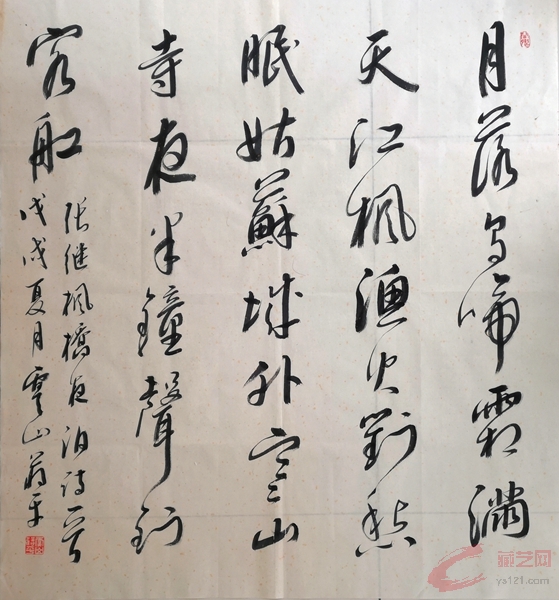 月落烏啼霜滿
天江楓漁火對愁
眠姑蘇城外寒山
寺夜半鐘聲到
客船
張继楓橋夜泊詩一首
戊戌夏月雲山蔣平
藏艺网
ys121.com